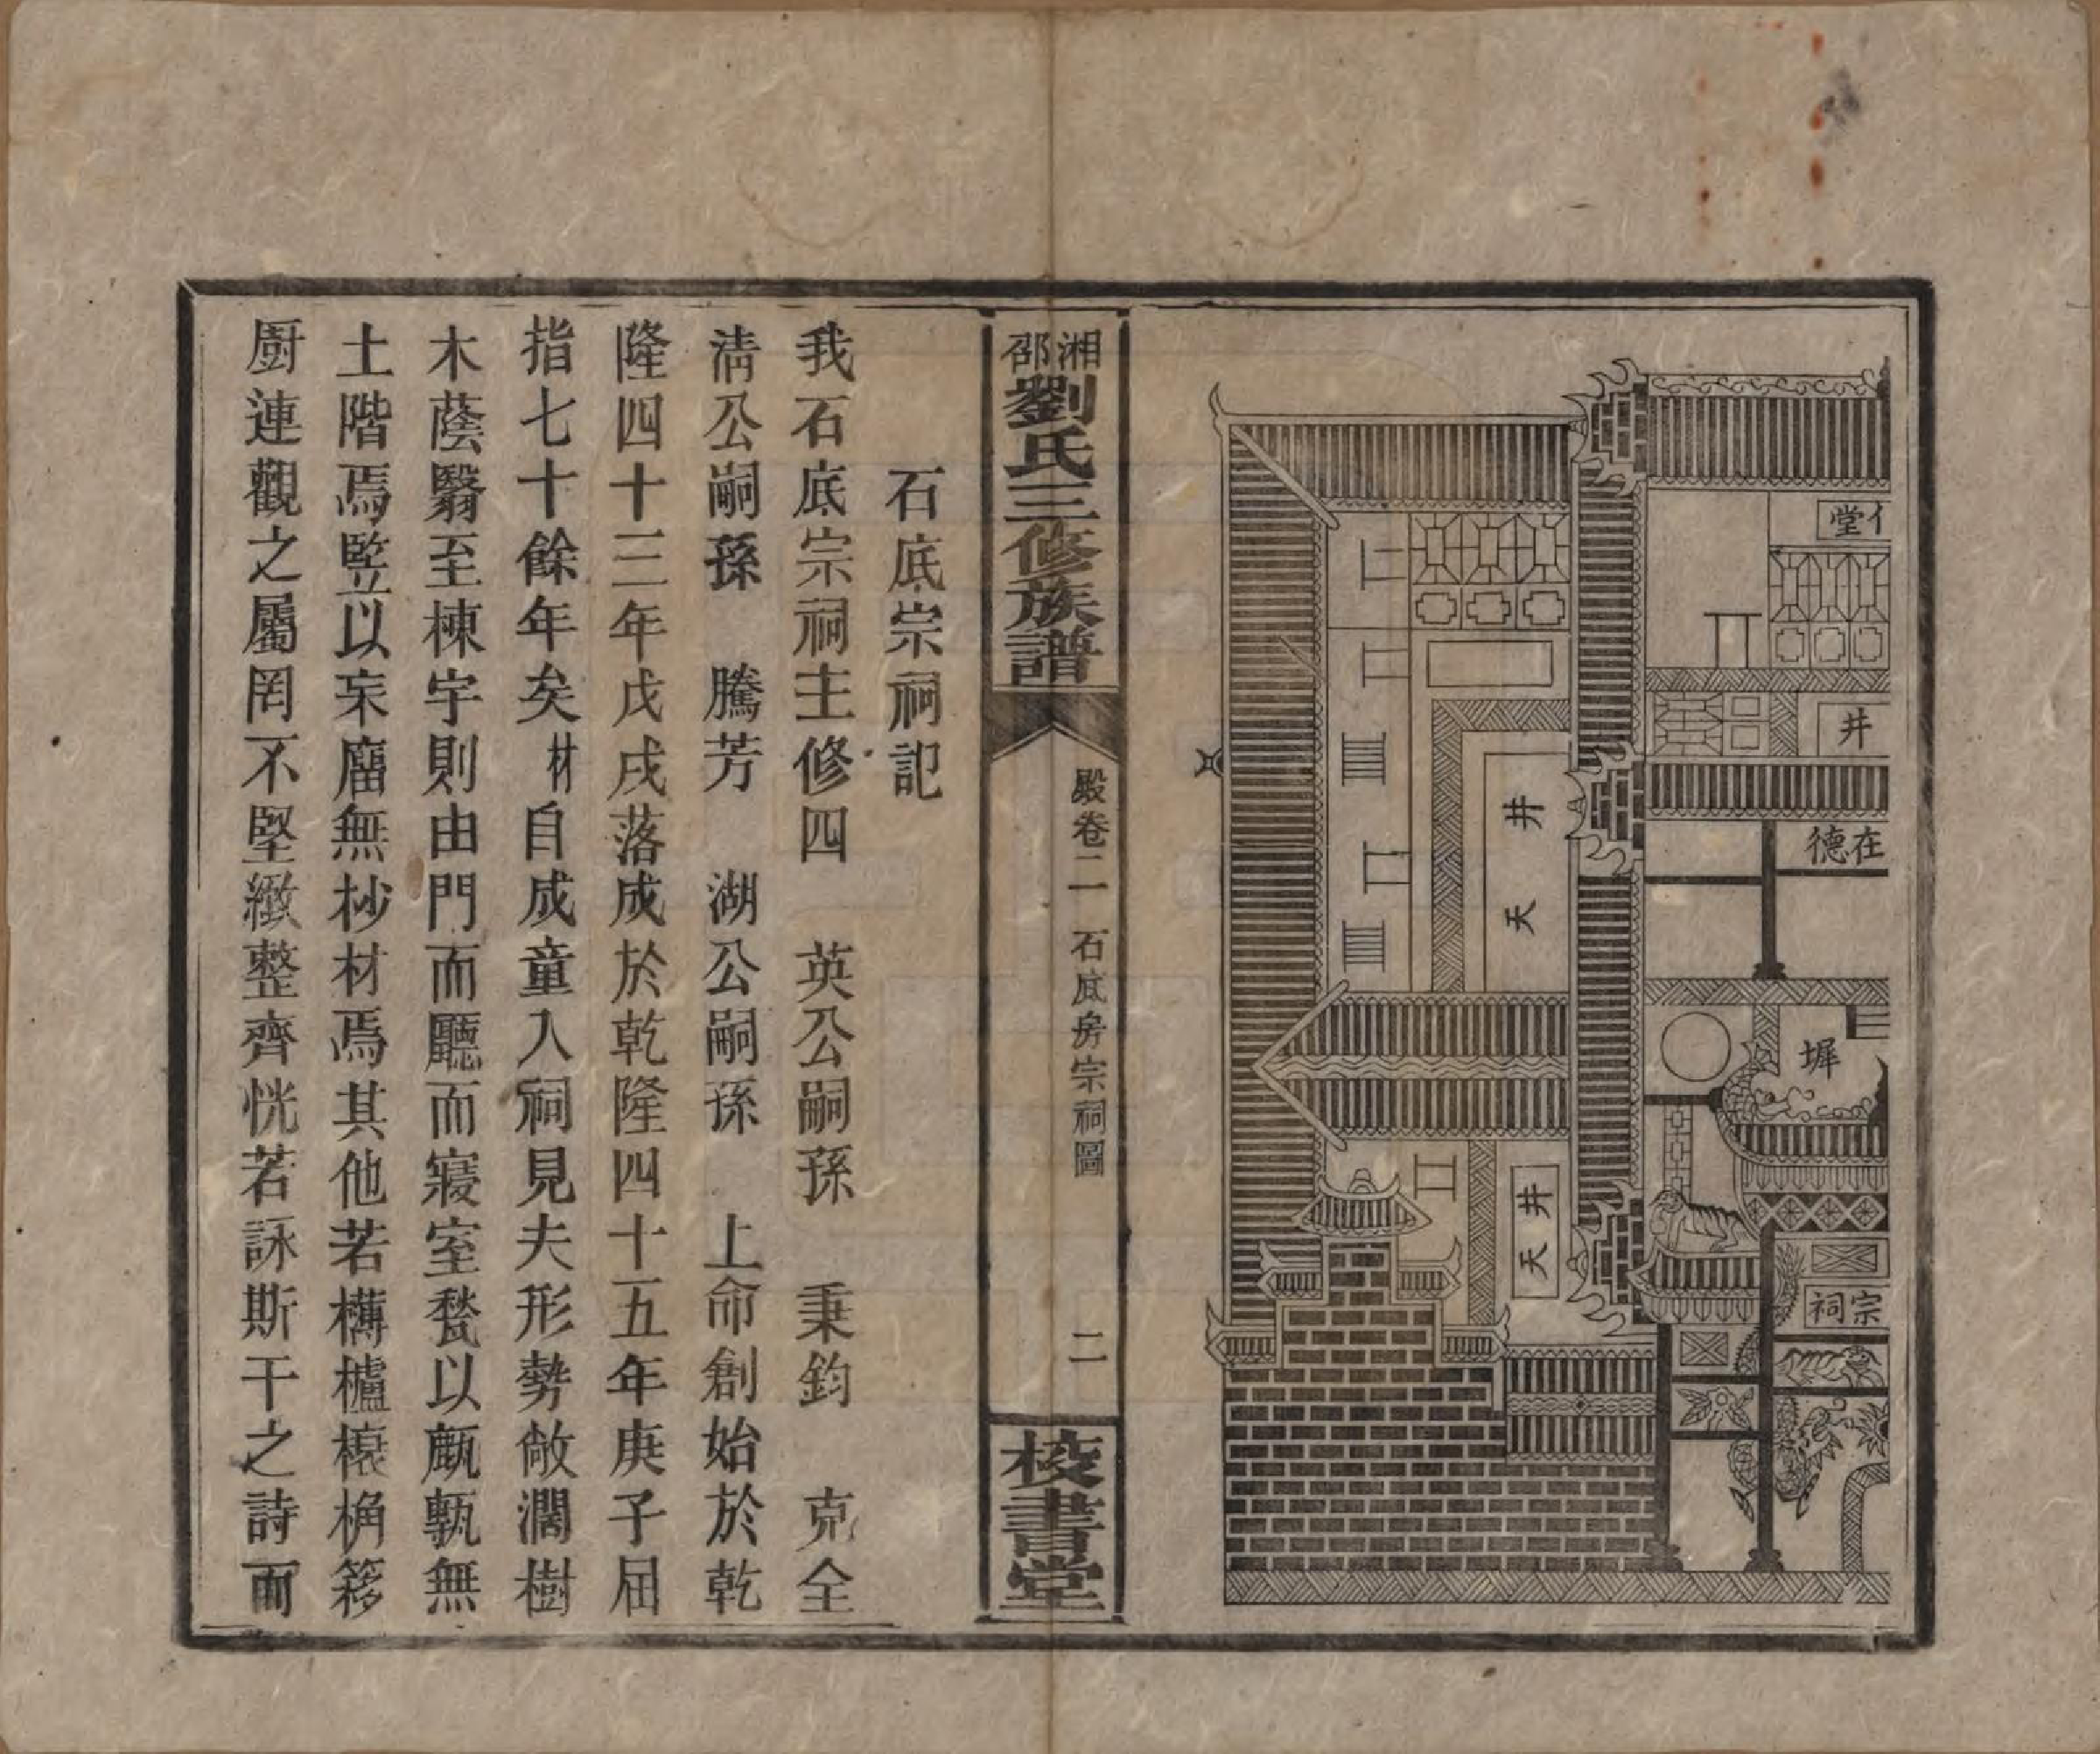 堂
井
在德
墀
宗祠
天井
天井
湘邵劉氏三修族譜
殿卷二 石底房宗祠圖
二
校書堂
石底宗祠記
我石底宗祠主修四 英公嗣孫 秉鈞 克全
淸公嗣孫 騰芳 湖公嗣孫 上命創始於乾
隆四十三年戊戌落成於乾隆四十五年庚子屈
指七十餘年矣材自成童入祠見夫形勢敞濶樹
木蔭翳至棟宇則由門而廳而寢室甃以甋瓻無
土階焉竪以宋廇無杪材焉其他若欂櫨榱桷簃
廚連觀之屬罔不堅緻整齊恍若詠斯干之詩而